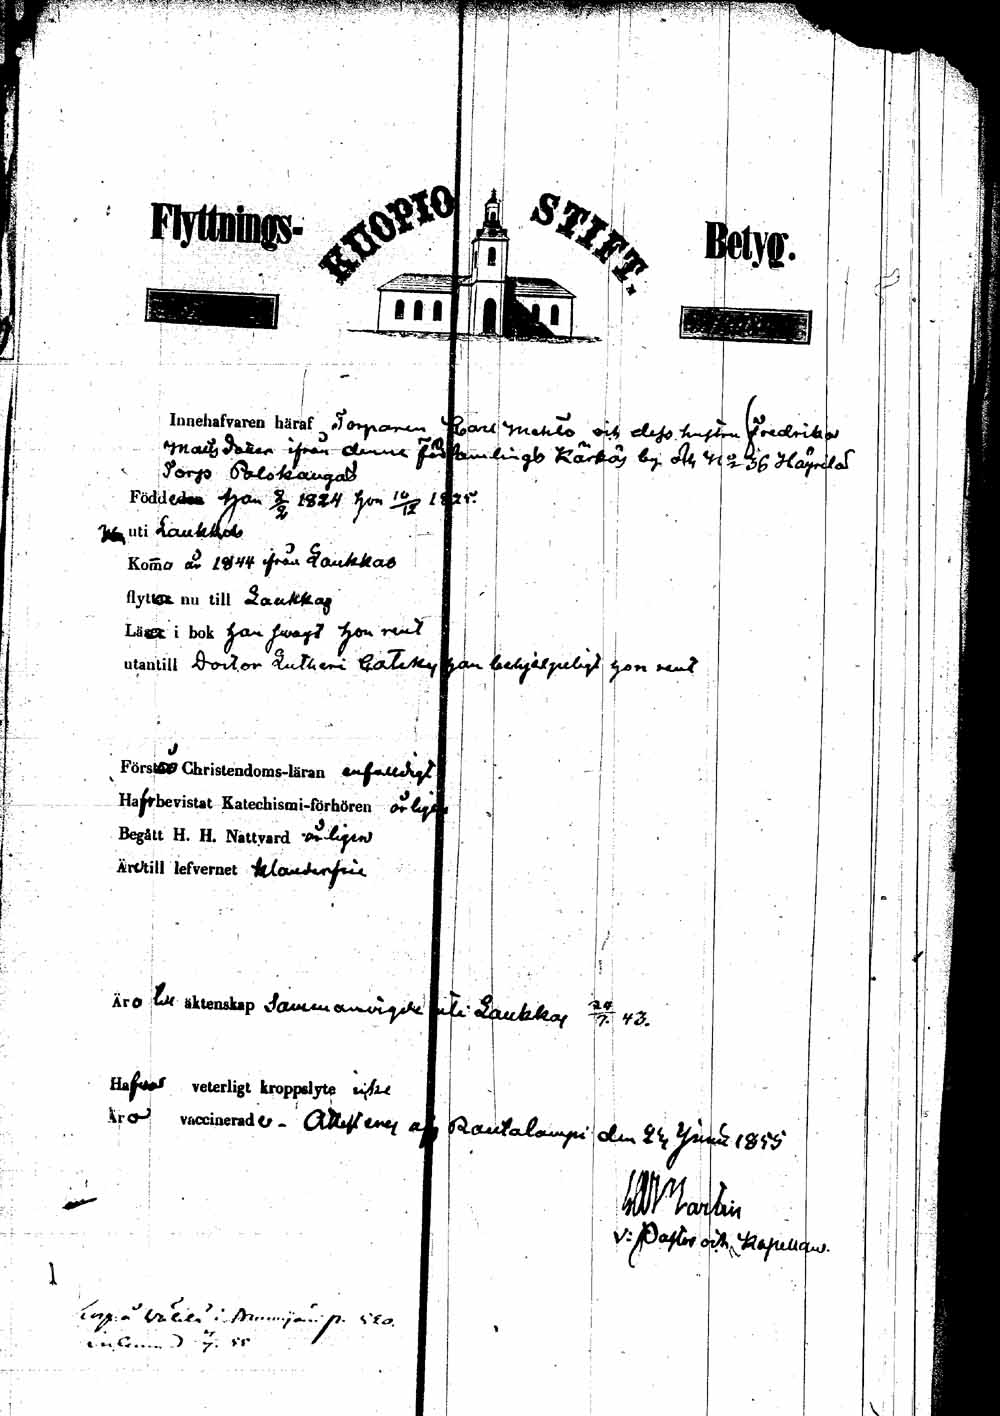 Flyttnings- KUOPIO STIFT. Betyg.
Innehafvaren häraf Torparen Carl och dess hustru Fredrika
Matts Doter ifrån denna Församlings Kärkäs by och No 36 Häyrilä
Torp Polokangas
Födde han 2/2 1824 hon 10/12 1825.
uti Laukkas
Komo år 1844 ifrån Laukkas
flytta nu till Laukkas
Läsa i bok han svagt hon rent
utantill Doctor Lutheri Cateky han behjelpeligt hon rent
Förstå Christendoms-läran enfaldigt
Hafvbevistat Katechismi-förhören årligen
Begått H. H. Nattvard årligen
Äro till lefvernet klanderfrie
Äro äktenskap Sammanvigde uti Laukkas 24/7. 43.
Hafva veterligt kroppslyte icke
Äro vaccinerade - Attesteras af Rautalampi den Junii 1855
Martin
v: Pastor och Kapellan.
Torp å i p. 520.
55